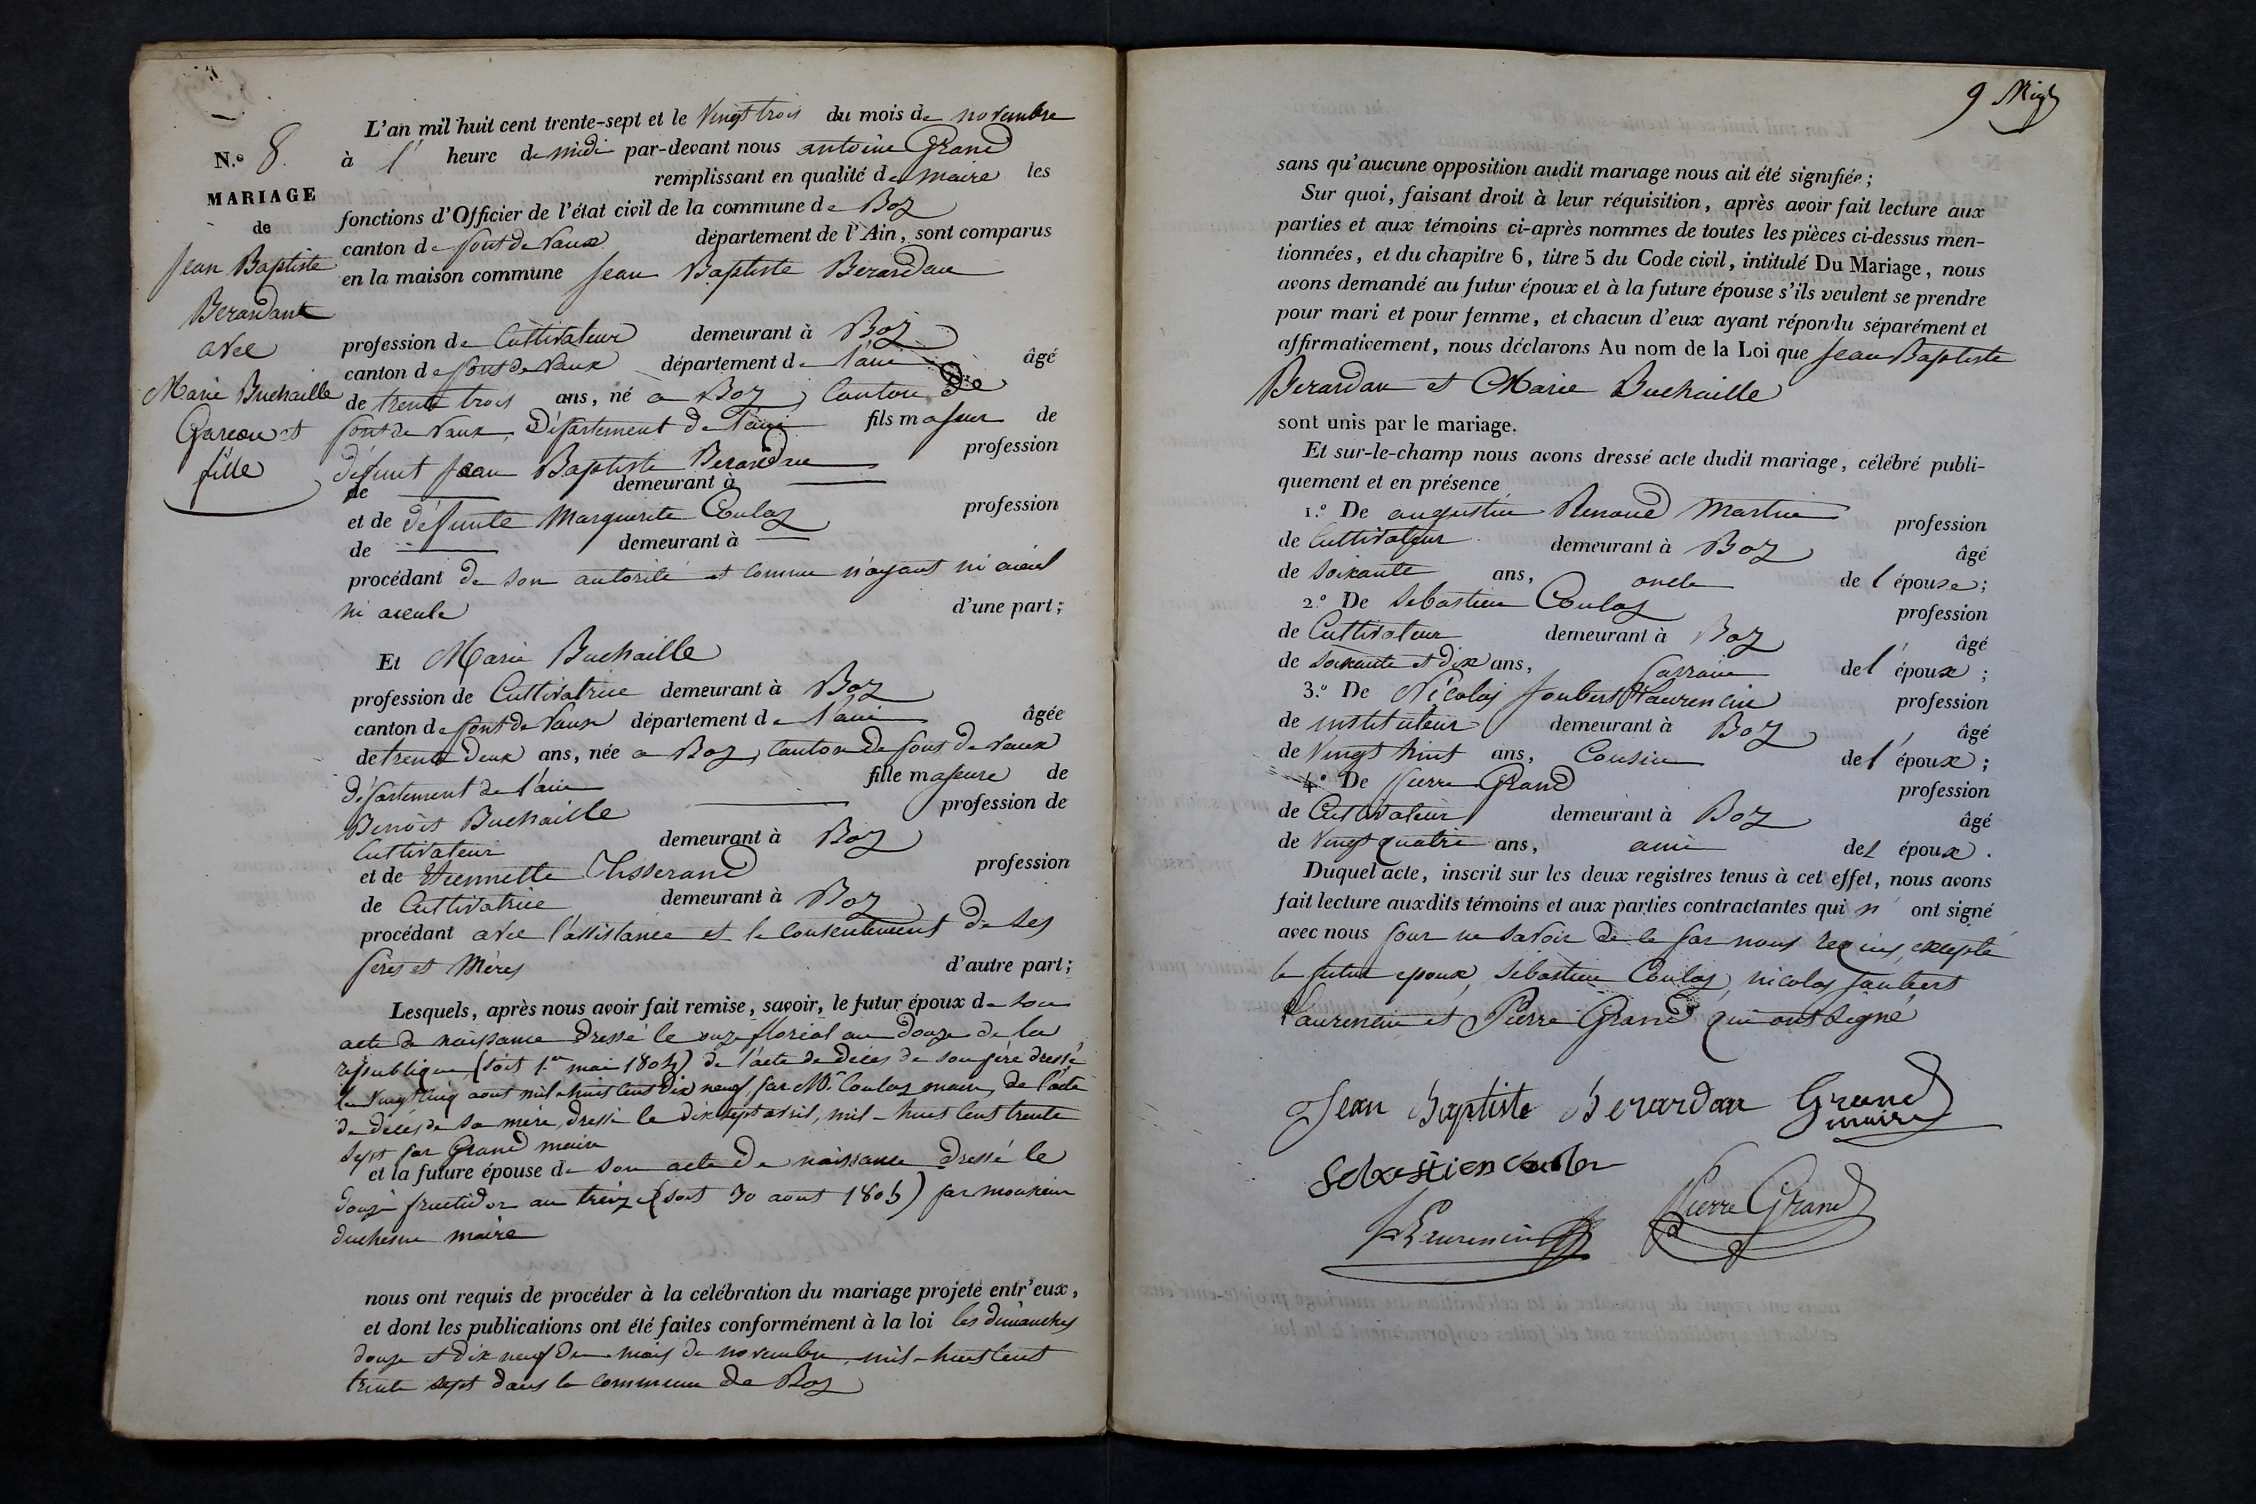 N.o 8.
MARIAGE
de
Jean Baptiste
Berardant
avec
Marie Buchaille
Garcon et
fille
L'an mil huit cent trente-sept et le Vingt trois du mois de novembre
à 1' heure de midi par-devant nous antoine Grand
remplissant en qualité de maire les
fonctions d'Officier de l'état civil de la commune de Boz
canton de pont de Vaux département de l'Ain, sont comparus
en la maison commune Jean Baptiste Berardan
profession de Cultivateur demeurant à Boz
canton de pont de Vaux département de l'ain âgé
de trente trois ans, né a Boz, Canton de
pont de Vaux, Département de l'ain fils majeur de
défunt Jean Baptiste Berardan profession
de demeurant à
et de défunte Marguerite Coulas profession
de demeurant à
procédant de son autorité et comme n'ayant ni aieul
ni aieule d'une part;
Et Marie Buchaille
profession de Cultivatrice demeurant à Boz
canton de pont de Vaux département de l'ain âgée
de trente deux ans, née a Boz, Canton de pont de Vaux
département de l'ain fille majeure de
Benoit Buchaille profession de
Cultivateur demeurant à Boz
et de Etiennette Tisserand profession
de Cultivatrice demeurant à Boz
procédant avec l'assistance et le consentement de ses
peres et Mères d'autre part;
Lesquels, après nous avoir fait remise, savoir, le futur époux de son
acte de naissance dressé le onze florial an douze de la
republique (soit 1.er mai 1804) de l'acte de décès de son père dressé
le vingt cinq aout mil huit cent dix neuf par Mr Coulas maire, de l'acte
de décès de sa mère, dressé le dix sept avril, mil-huit cent trente
sept par Grand maire
et la future épouse de son acte de naissance dressé le
douze fructidor an treize (soit 30 aout 1805) par monsieur
duchesne maire
nous ont requis de procéder à la célébration du mariage projeté entr'eux,
et dont les publications ont été faites conformément à la loi les dimanches
douze et dix neuf du mois de novembre mil-huit cent
trente sept dans la commune de Boz
9
sans qu'aucune opposition audit mariage nous ait été signifiée;
Sur quoi, faisant droit à leur réquisition, après avoir fait lecture aux
parties et aux témoins ci-après nommés de toutes les pièces ci-dessus men-
tionnées, et du chapitre 6, titre 5 du Code civil, intitulé Du Mariage, nous
avons demandé au futur époux et à la future épouse s'ils veulent se prendre
pour mari et pour femme, et chacun d'eux ayant répondu séparément et
affirmativement, nous déclarons Au nom de la Loi que Jean Baptiste
Berardan et Marie Buchaille
sont unis par le mariage.
Et sur-le-champ nous avons dressé acte dudit mariage, célébré publi-
quement et en présence
1.o De augustin Renoud Martin profession
de Cultivateur demeurant à Boz âgé
de soixante ans, oncle de l'épouse;
2.o De sebastien Coulas profession
de Cultivateur demeurant à Boz âgé
de soixante et dix ans, parrain de l'époux;
3.o De Nicolas Joubert Laurencin profession
de instituteur demeurant à Boz âgé
de Vingt huit ans, Cousin de l'époux;
4.o De pierre Grand profession
de Cultivateur demeurant à Boz âgé
de Vingt quatre ans, ami del époux.
Duquel acte, inscrit sur les deux registres tenus à cet effet, nous avons
fait lecture auxdits témoins et aux parties contractantes qui n' ont signé
avec nous pour ne savoir de ce par nous requis, excepté
le futur epoux, sébastien Coulas, nicolas Joubert
Laurencin et Pierre Grand qui ont signé
Jean Baptiste Berardan Grand
maire
Sebastien
Laurencin Pierre Grand